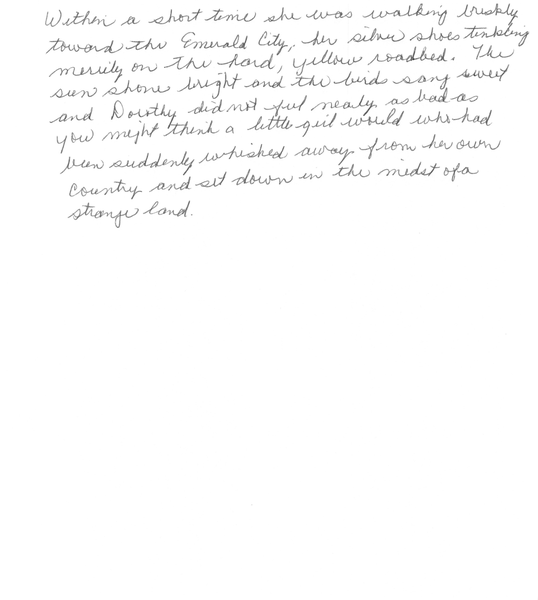 Within a short time she was walking briskly
toward the Emerald City, her silver shoes tinkling
merrily on the hard, yellow roadbed. The
sun shone bright and the birds sang sweet
and Dorothy did not feel nearly as bad as
you might think a little girl would who had
been suddenly whisked away from her own
country and set down in the midst of a
strange land.